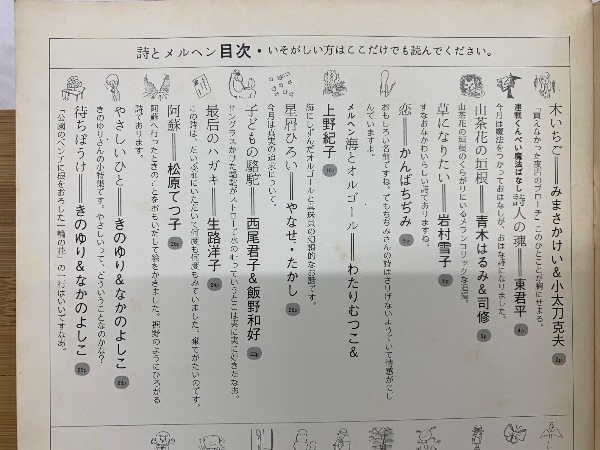 詩とメルヘン目次・いそがしい方はここだけでも読んでください。
木いちご━━みまさかけい&小太刀克夫 2p
「買えなかった夜店のブローチ」このひとことが胸にせまる。
連載くんぺい魔法ばなし 詩人の魂━━東君平 4p
今月は魔法をつかっておはなしが、おはな詩になりました。
山茶花の垣根━━青木はるみ&司修 6p
山茶花の垣根のくらがりにいるメランコリックな追憶。
草になりたい━━岩村雪子 8p
すなおなかわいらしい詩でありますね。
恋━━かんばちぢみ 9p
おもしろい名前ですね。でもちぢみさんの詩はさりげないようでいて情感がにじ
んでいますよ。
メルヘン 海とオルゴール━━わたりむつこ&
上野紀子 10p
海にしずんだオルゴールと真珠貝の幻想的なお話です。
星屑ひろい━━やなせ・たかし 20p
今月は真実の追求について。
子どもの駱駝━━西尾君子&飯野和好 22p
サングラスかけた駱駝がストローで水のわっているとこは実に実に好きだなあ。
最后のハガキ━━生路洋子 24p
この詩は、だいぶ前にいただいて何度も何度もみていました。棄てがたいのです。
阿蘇━━松原てつ子 26p
阿蘇へ行ったときのことをおもいだして絵をかきました。裾野のようにひろがる
詩であります。
やさしいひと━━きのゆり&なかのよしこ 28p
きのゆりさんの小特集です。やさしいって、どういうことなのかな?
待ちぼうけ━━きのゆり&なかのよしこ 29p
「公園のベンチに根をおろした一輪の花」の一行はいいですなあ。